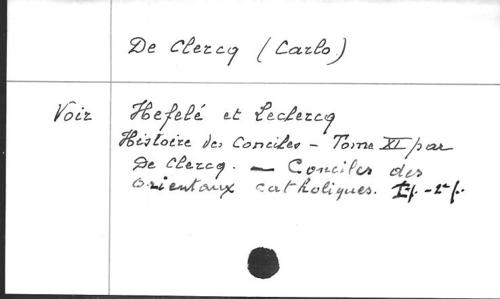 De Clercq (Carlo)
Voir Hefelé et Leclercq
Histoire des Conciles - Tome XI par
De Clercq. - Conciles des
orientaux catholiques. 1 p. - 2e p.